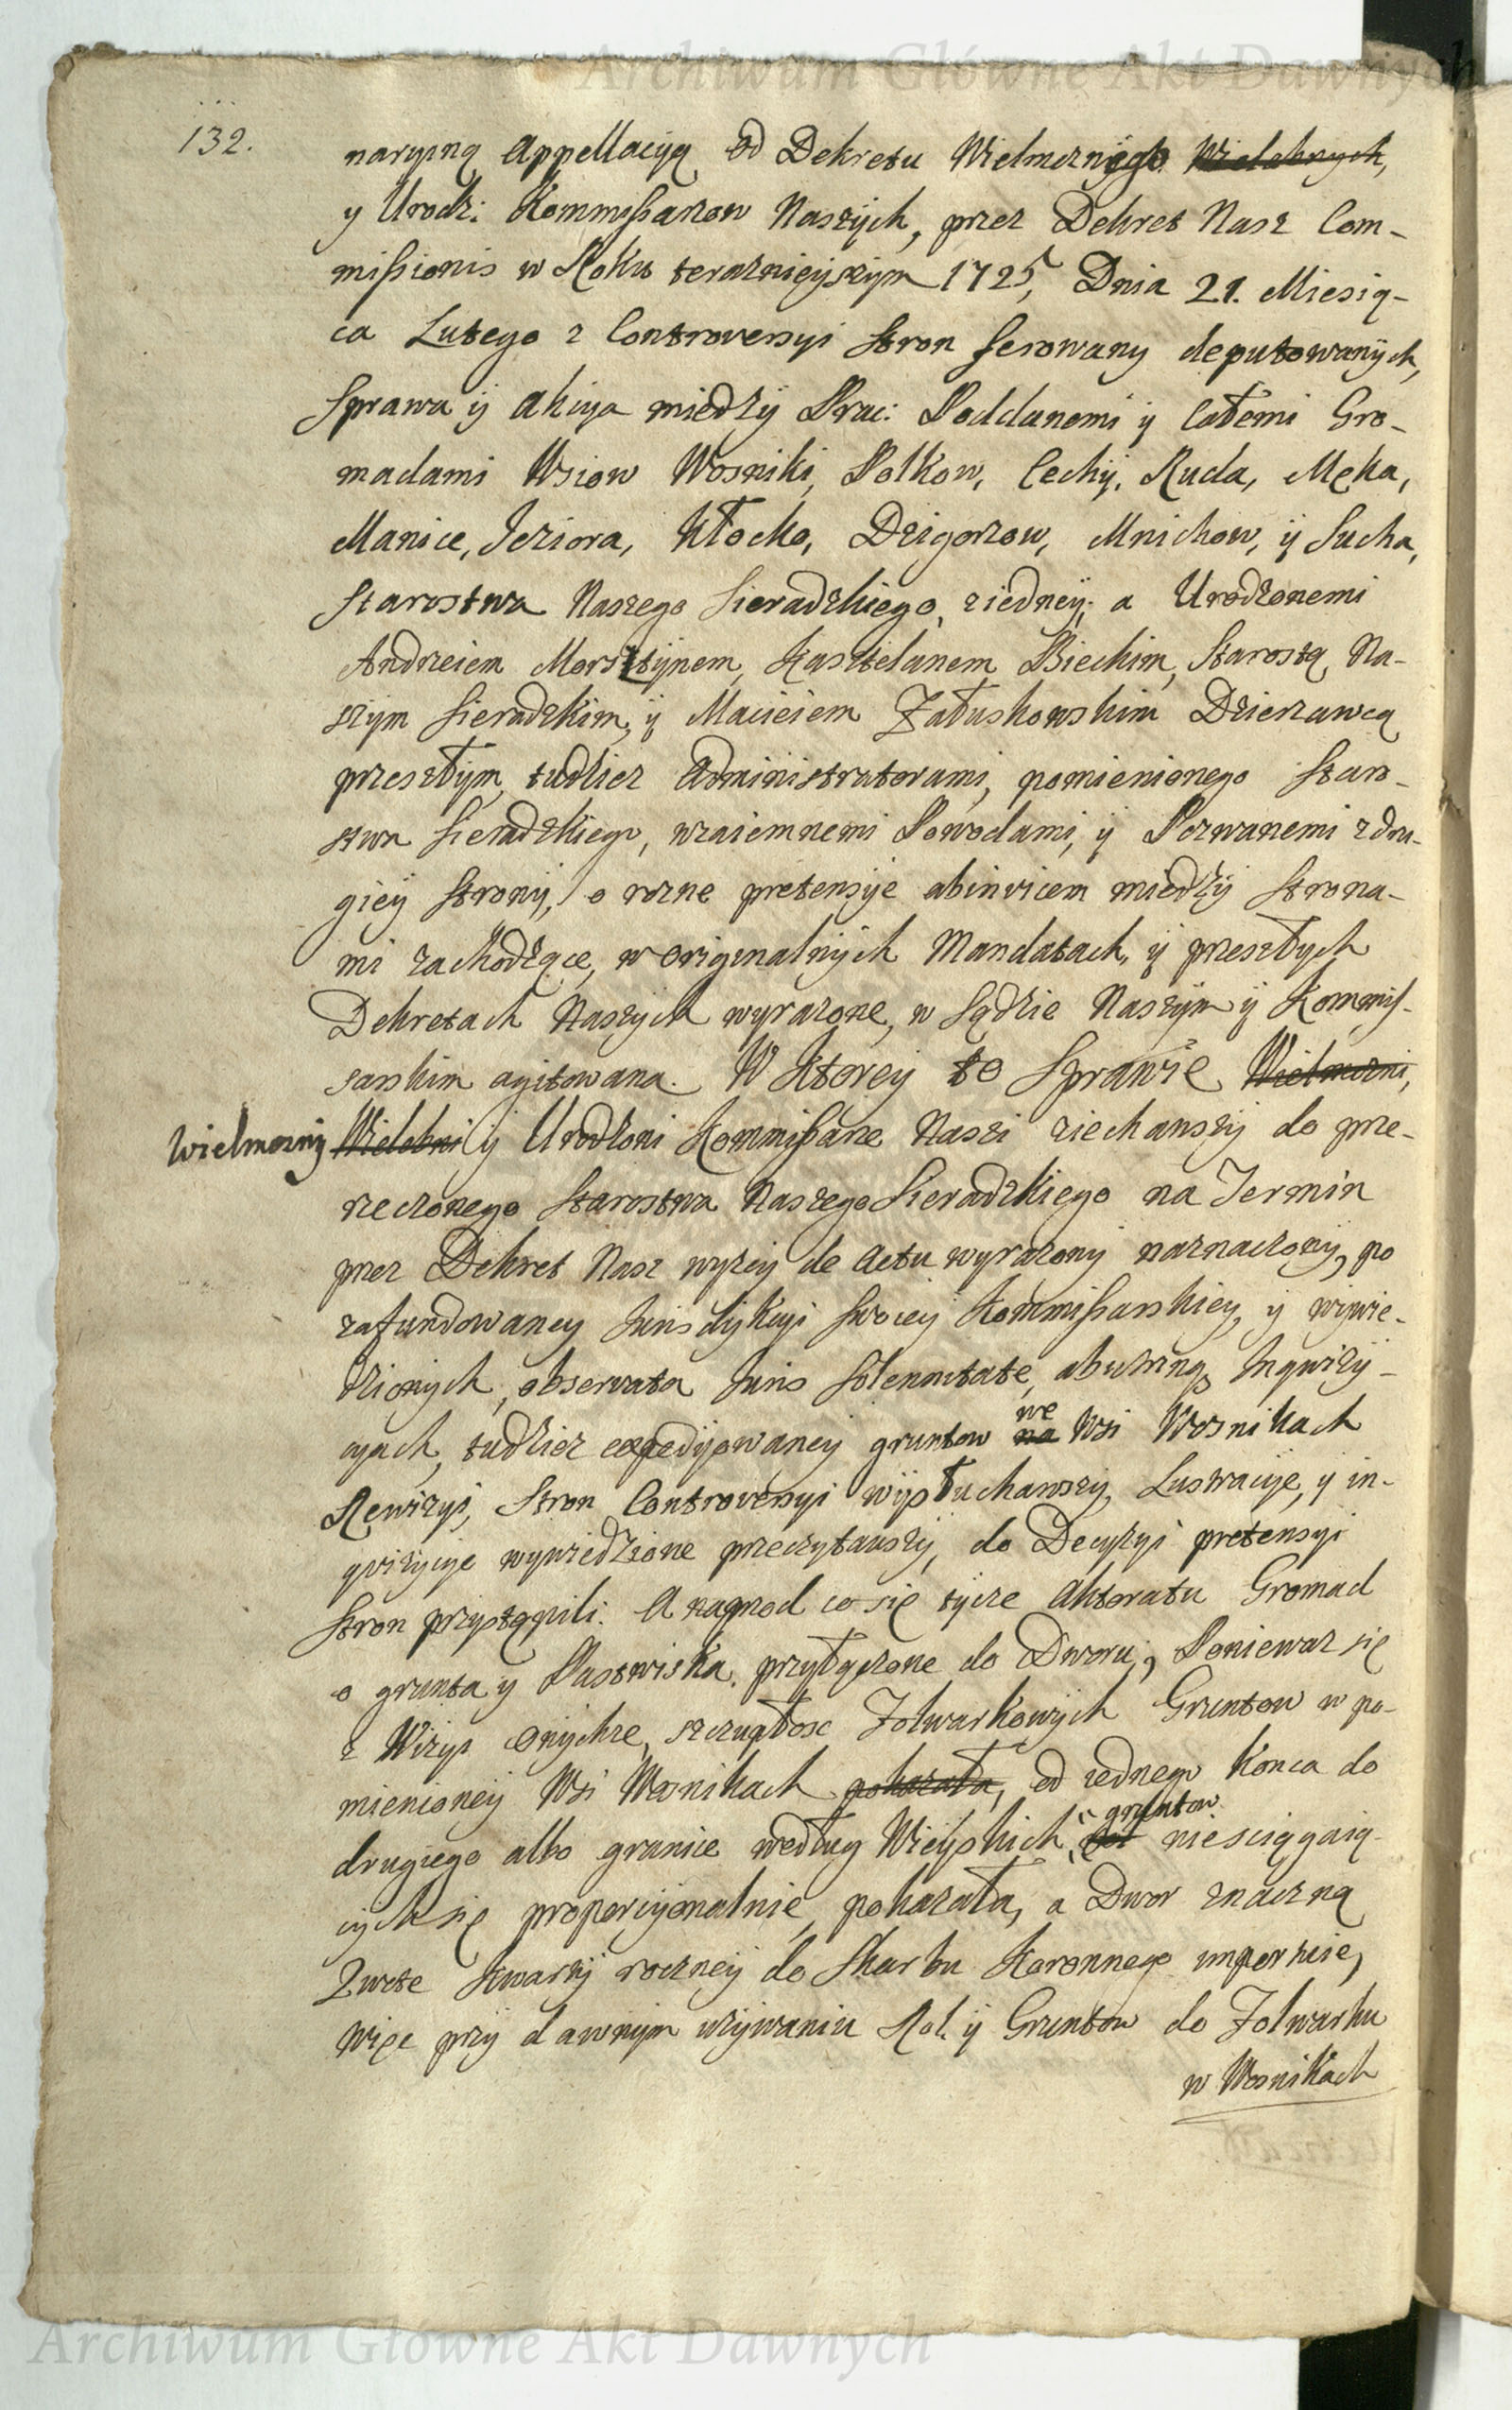 Archiwum Główne Akt Dawnych
132.
naryiną Appellacyą od Dekretu Wielmoznego Wielebnych,
y Urodz: Kommissarzow Naszych, przez Dekret Nasz Com-
missionis w Roku teraznieyszym 1725, Dnia 21. Miesią-
ca Lutego z Controversyi Stron ferowany deputowanych,
Sprawa y Akcya między Prac: Poddanemi y Całemi Gro-
madami Wsiow Wosniki, Polkow, Cechy, Ruda, Męka,
Manice, Jeziora, Kłocko, Dzigorzow, Mnichow, y Sucha,
Starostwa Naszego Sieradzkiego, ziedney, a Urodzonemi
Andrzeiem Morsztynem, Kasztelanem Bieckim, Starostą Na-
szym Sieradzkim, y Macieiem Załuskowskim Dzierzawcą
przeszłym, tudziez Administratorami, pomienionego Staro-
stwa Sieradzkiego, wzaiemnemi Powodami, y Pozwanemi zdru-
giey Strony, o rozne pretensye abinvicem między Strona-
mi zachodzące, w Oryginalnych Mandatach, y przeszłych
Dekretach Naszych wyrazone, w Sądzie Naszym y Kommis-
sarskim agitowana. W Ktorey to Sprawie Wielmozni,
Wielmozny Wielebni y Urodzoni Kommissarze Naszi ziechawszy do prze-
rzeczonego Starostwa Naszego Sieradzkiego na Termin
przez Dekret Nasz wyzey de Actu wyrazony naznaczony, po
zafundowaney Jurisdykcyi Swoiey Kommissarskiey, y wywie-
dzionych, observata Juris Solennitate, abutrinq, Inqwizy-
cyach, tudziez expedyowaney gruntow na we Wsi Wosnikach
Rewizyi, Stron Controversyi wysłuchawszy, Lustracye, y in-
qvizycye wywiedzione przeczytawszy, do Decyzyi pretensyi
Stron przystąpili. A naprzod co się tycze Aktoratu Gromad
o grunta y Pastwiska, przyłączone do Dworu, Poniewaz się
z Wizyi Onychze, szczupłosc Folwarkowych Gruntow w po-
mienioney Wsi Wosnikach pokazała, od iednego Konca do
drugiego albo granice według Wieyskich, gruntow niesciągaią-
cych się proporcyonalnie, pokazała, a Dwor znaczną
Zwote Kwarty roczney do Skarbu Koronnego importuie,
Więc przy dawnym uzywaniu Rol y Gruntow do Folwarku
w Wosnikach
Archiwum Główne Akt Dawnych